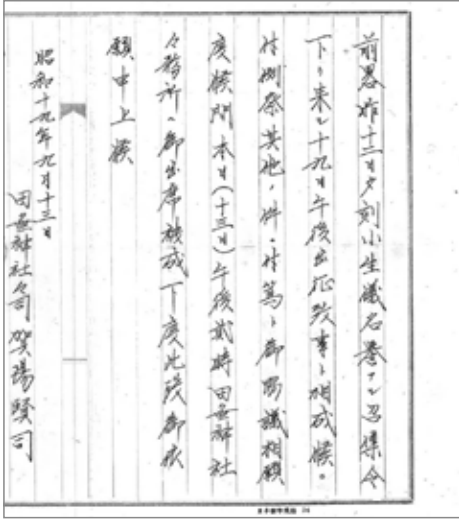 前畧昨十二日夕刻小生儀名誉アル召集令
下リ来ル十九日午後出征致事ト相成候。
付例祭其他ノ件ニ付篤ト御協議相願
度候間本日(十三日)午後貳時田無神社
々務所ヘ御出席被成下度此段御依
願申上候
昭和十九年九月十三日
田無神社々司 賀陽賢司